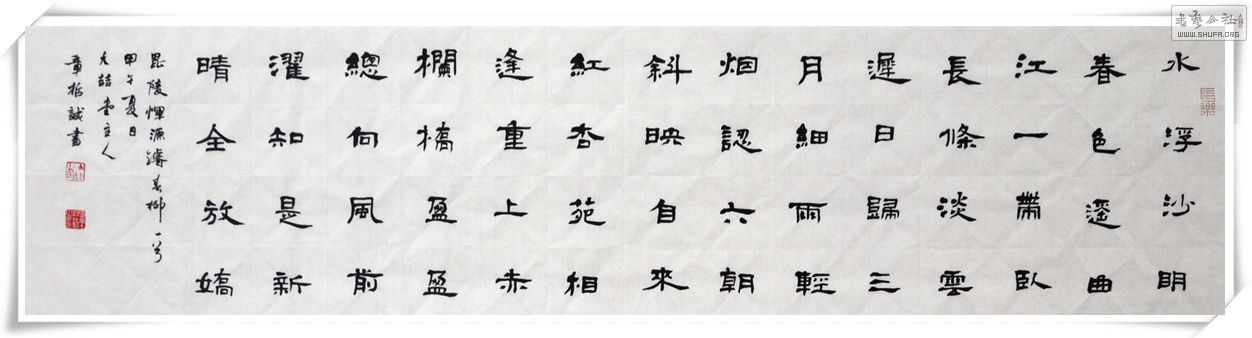 水浮沙明
春色遥曲
江一帶臥
長條淡雲
遲日歸三
月細雨輕
烟認六朝
斜映自來
紅杏苑相
逢重上赤
欄橋盈盈
總向風前
濯知是新
晴全放嬌
毘陵惲源濬春柳一首
甲午夏日
大喆堂主人
章哲誠書
書藝公社
WWW.SHUFA.ORG